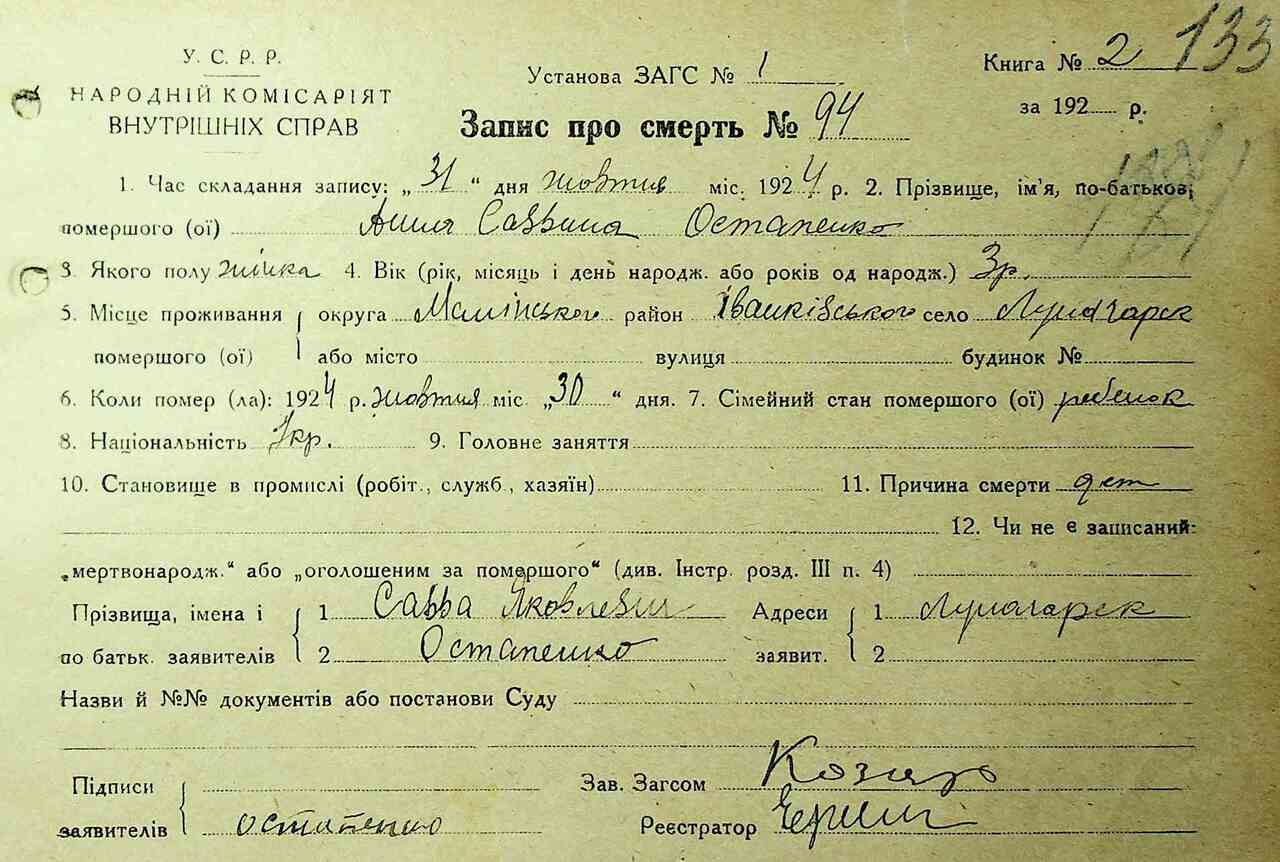 133
У. С. Р. Р.
НАРОДНІЙ КОМІСАРІЯТ
ВНУТРІШНІХ СПРАВ
Установа ЗАГС № 1
Книга № 2
за 192 р.
Запис про смерть № 94
1. Час складання запису: „31“ дня жовтня міс. 1924 р. 2. Прізвище, ім'я, по-батькові
помершого (ої) Анна Саввина Остапенко
3. Якого полу жінка 4. Вік (рік, місяць і день народж. або років од народж.) 3 р.
5. Місце проживання округа Малінського район Іванківського село
помершого (ої) або місто вулиця будинок №
6. Коли помер (ла): 1924 р. жовтня міс. „30“ дня. 7. Сімейний стан помершого (ої) ребенок
8. Національність Укр. 9. Головне заняття
10. Становище в промислі (робіт., служб., хазяїн) 11. Причина смерти
12. Чи не є записаний:
„мертвонародж.“ або „оголошеним за помершого“ (див. Інстр. розд. III п. 4)
Прізвища, імена і 1 Савва Яковлевич Адреси 1
по батьк. заявителів 2 Остапенко заявит. 2
Назви й №№ документів або постанови Суду
Підписи Зав. Загсом
заявителів Остапенко Реєстратор